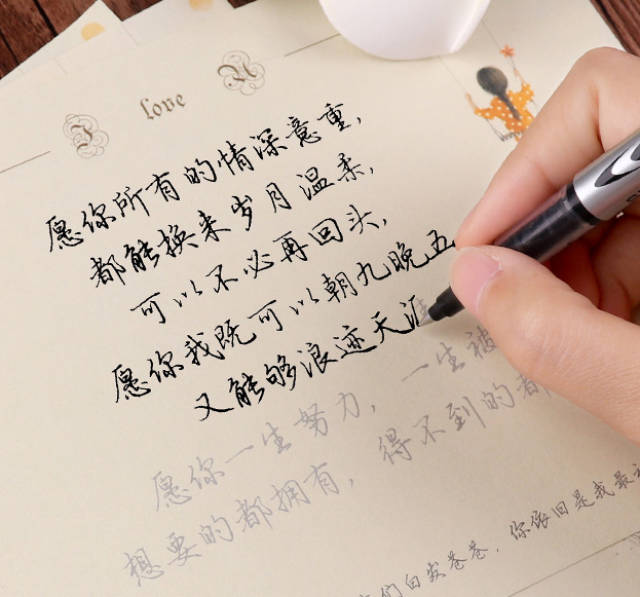 I love U
愿你所有的情深意重,
都能换来岁月温柔,
可以不必再回头,
愿你我既可以朝九晚五
又能够浪迹天涯
愿你一生努力，一生被
想要的都拥有，得不到的都
们白发卷卷，你依旧是我最